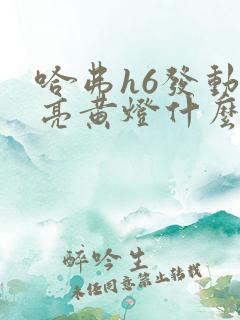 哈弗h6發動
亮黃燈什麼
醉吟生
未經同意禁止轉載